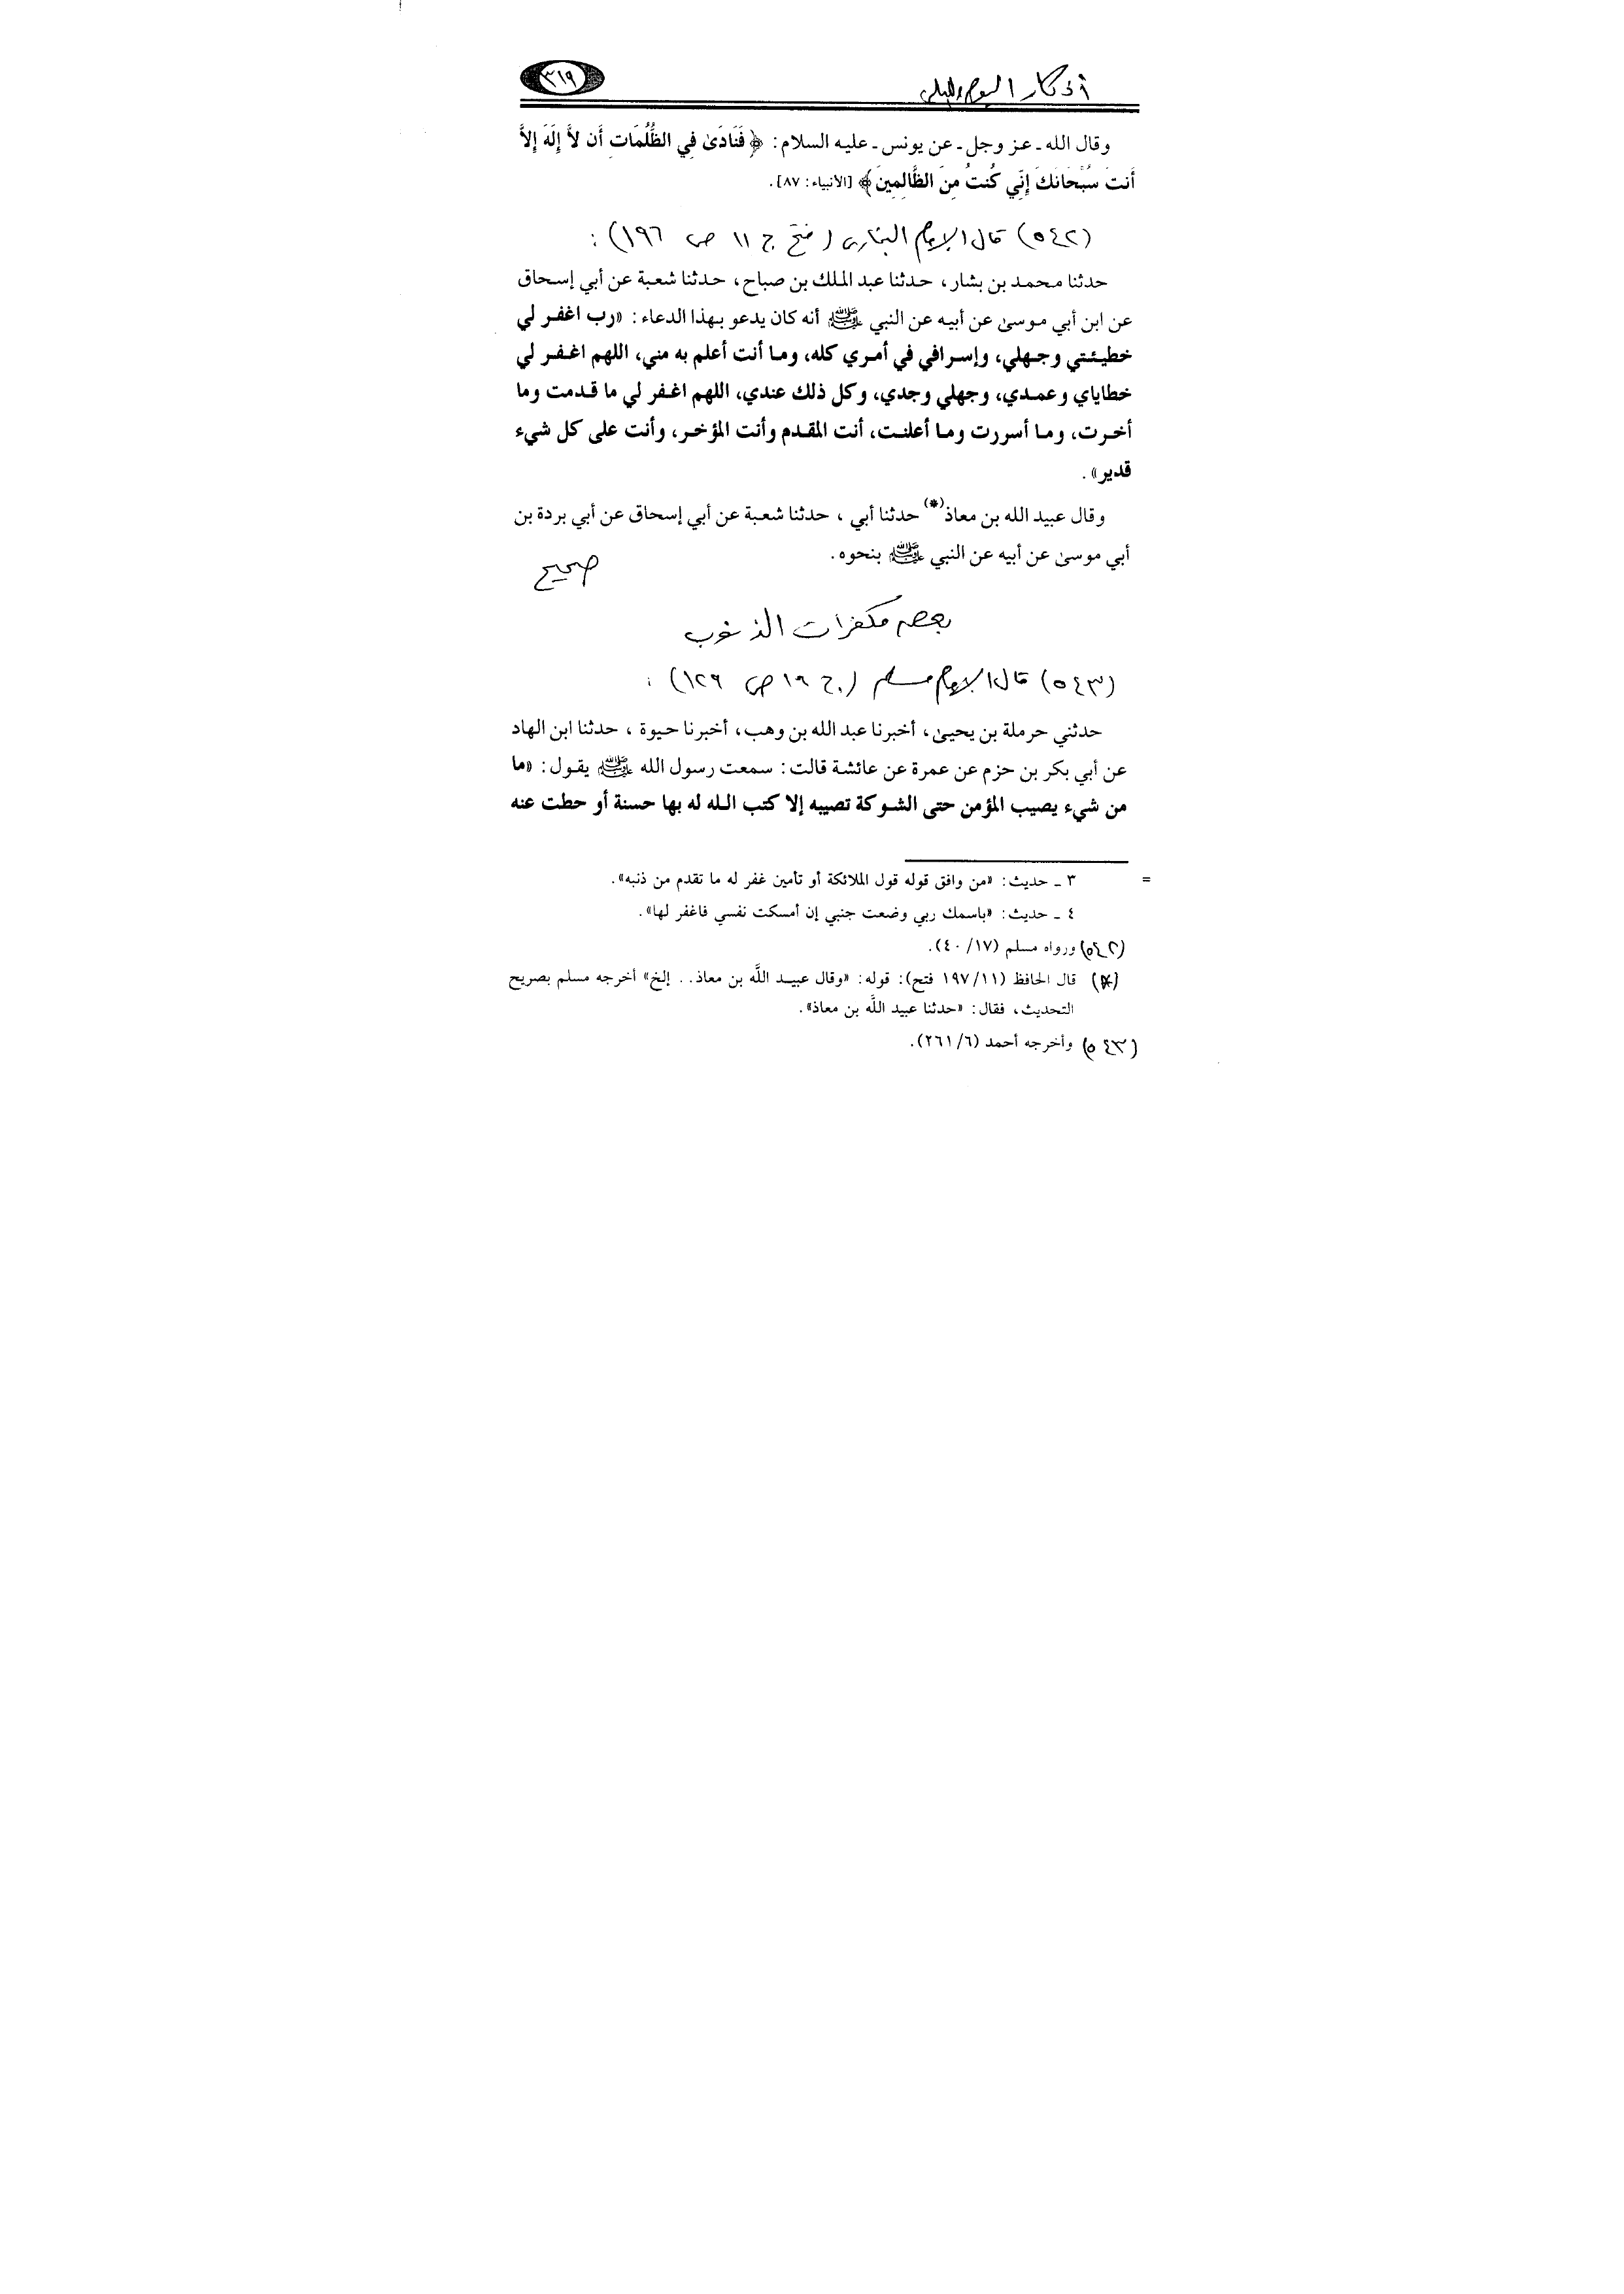 أذكار اليوم والليلة
٣١٩
وقال الله ـ عز وجل ـ عن يونس ـ عليه السلام: ﴿ فَنَادَىٰ فِي الظُّلُمَاتِ أَن لاَّ إِلَهَ إِلاَّ
أَنتَ سُبْحَانَكَ إِنِّي كُنتُ مِنَ الظَّالِمِينَ ﴾ [الأنبياء: ٨٧].
(٥٤٢) قال الإمام البخاري (فتح ج ١١ ص ١٩٦) :
حدثنا محمد بن بشار، حدثنا عبد الملك بن صباح، حدثنا شعبة عن أبي إسحاق
عن ابن أبي موسىٰ عن أبيه عن النبي ﷺ أنه كان يدعو بهذا الدعاء: «رب اغفر لي
خطيئتي وجهلي، وإسرافي في أمري كله، وما أنت أعلم به مني، اللهم اغفر لي
خطاياي وعمدي، وجهلي وجدي، وكل ذلك عندي، اللهم اغفر لي ما قدمت وما
أخرت، وما أسررت وما أعلنت، أنت المقدم وأنت المؤخر، وأنت على كل شيء
قدير» .
وقال عبيد الله بن معاذ(*) حدثنا أبي ، حدثنا شعبة عن أبي إسحاق عن أبي بردة بن
أبي موسىٰ عن أبيه عن النبي ﷺ بنحوه .
صحيح
بعض مكفرات الذنوب
(٥٤٣) قال الإمام مسلم (ج ١٦ ص ١٢٩) :
حدثني حرملة بن يحيىٰ، أخبرنا عبد الله بن وهب، أخبرنا حيوة ، حدثنا ابن الهاد
عن أبي بكر بن حزم عن عمرة عن عائشة قالت: سمعت رسول الله ﷺ يقول: «ما
من شيء يصيب المؤمن حتى الشوكة تصيبه إلا كتب الله له بها حسنة أو حطت عنه
= ٣ ـ حديث: «من وافق قوله قول الملائكة أو تأمين غفر له ما تقدم من ذنبه».
٤ ـ حديث: «باسمك ربي وضعت جنبي إن أمسكت نفسي فاغفر لها».
(٥٤٢) ورواه مسلم (١٧/ ٤٠).
(*) قال الحافظ (١١/ ١٩٧ فتح): قوله: «وقال عبيد اللَّه بن معاذ.. إلخ» أخرجه مسلم بصريح
التحديث، فقال: «حدثنا عبيد اللَّه بن معاذ».
(٥٤٣) وأخرجه أحمد (٦/ ٢٦١).